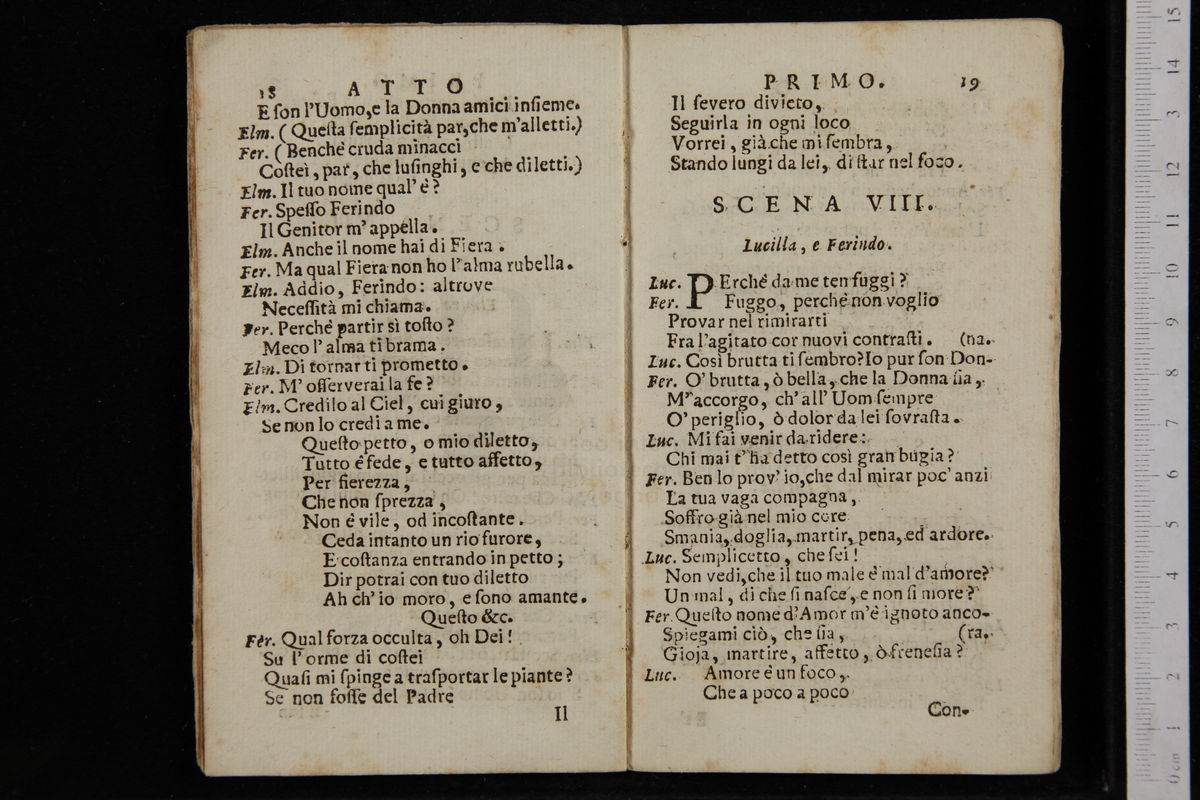 18 ATTO
E ſon l'Uomo,e la Donna amici inſieme.
Elm. (Queſta ſemplicità par,che m'alletti.)
Fer. (Benchè cruda minacci
Coſtei, par, che luſinghi, e che diletti.)
Elm. Il tuo nome qual' è?
Fer. Speſſo Ferindo
Il Genitor m' appella.
Elm. Anche il nome hai di Fiera.
Fer. Ma qual Fiera non ho l'alma rubella.
Elm. Addio, Ferindo: altrove
Neceſſità mi chiama.
Fer. Perchè partir sì toſto?
Meco l' alma ti brama.
Elm. Di tornarti prometto.
Fer. M' oſſerverai la fe?
Elm. Credilo al Ciel, cui giuro,
Se non lo credi a me.
Queſto petto, o mio diletto,
Tutto è fede, e tutto affetto,
Per fierezza,
Che non ſprezza,
Non è vile, od incoſtante.
Ceda intanto un rio furore,
E coſtanza entrando in petto;
Dir potrai con tuo diletto
Ah ch' io moro, e ſono amante.
Queſto &c.
Fer. Qual forza occulta, oh Dei!
Su l' orme di coſtei
Quaſi mi ſpinge a traſportar le piante?
Se non foſſe del Padre
Il
PRIMO. 19
Il ſevero divieto,
Seguirla in ogni loco
Vorrei, già che mi ſembra,
Stando lungi da lei, di ſtar nel foco.
SCENA VIII.
Lucilla, e Ferindo.
Luc. PErchè da me ten fuggi?
Fer. Fuggo, perchè non voglio
Provar nel rimirarti
Fra l'agitato cor nuovi contraſti. (na.
Luc. Così brutta ti ſembro? Io pur ſon Don-
Fer. O' brutta, ò bella, che la Donna ſia,
M' accorgo, ch' all' Uom ſempre
O' periglio, ò dolor da lei ſovraſta.
Luc. Mi fai venir da ridere:
Chi mai t' ha detto così gran bugia?
Fer. Ben lo prov' io,che dal mirar poc' anzi
La tua vaga compagna,
Soffro già nel mio core
Smania, doglia, martir, pena, ed ardore.
Luc. Semplicetto, che ſei!
Non vedi,che il tuo male è mal d'amore?
Un mal, di che ſi naſce, e non ſi more?
Fer. Queſto nome d'Amor m'è ignoto anco-
Spiegami ciò, che ſia, (ra.
Gioja, martire, affetto, ò freneſia?
Luc. Amore è un foco,
Che a poco a poco
Con-
15
14
13
12
11
10
9
8
7
6
5
4
3
2
1
0 cm